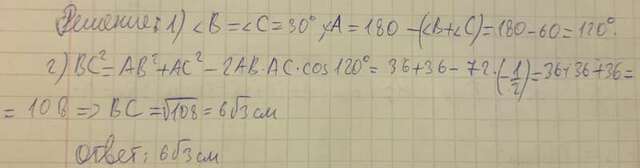 Решение: 1) ∠B=∠C=30°, ∠A=180-(∠B+∠C)=180-60=120°.
2) BC²=AB²+AC²-2AB·AC·cos120°=36+36-72·(-1/2)=36+36+36=
=108 => BC=√108=6√3см
Ответ: 6√3см